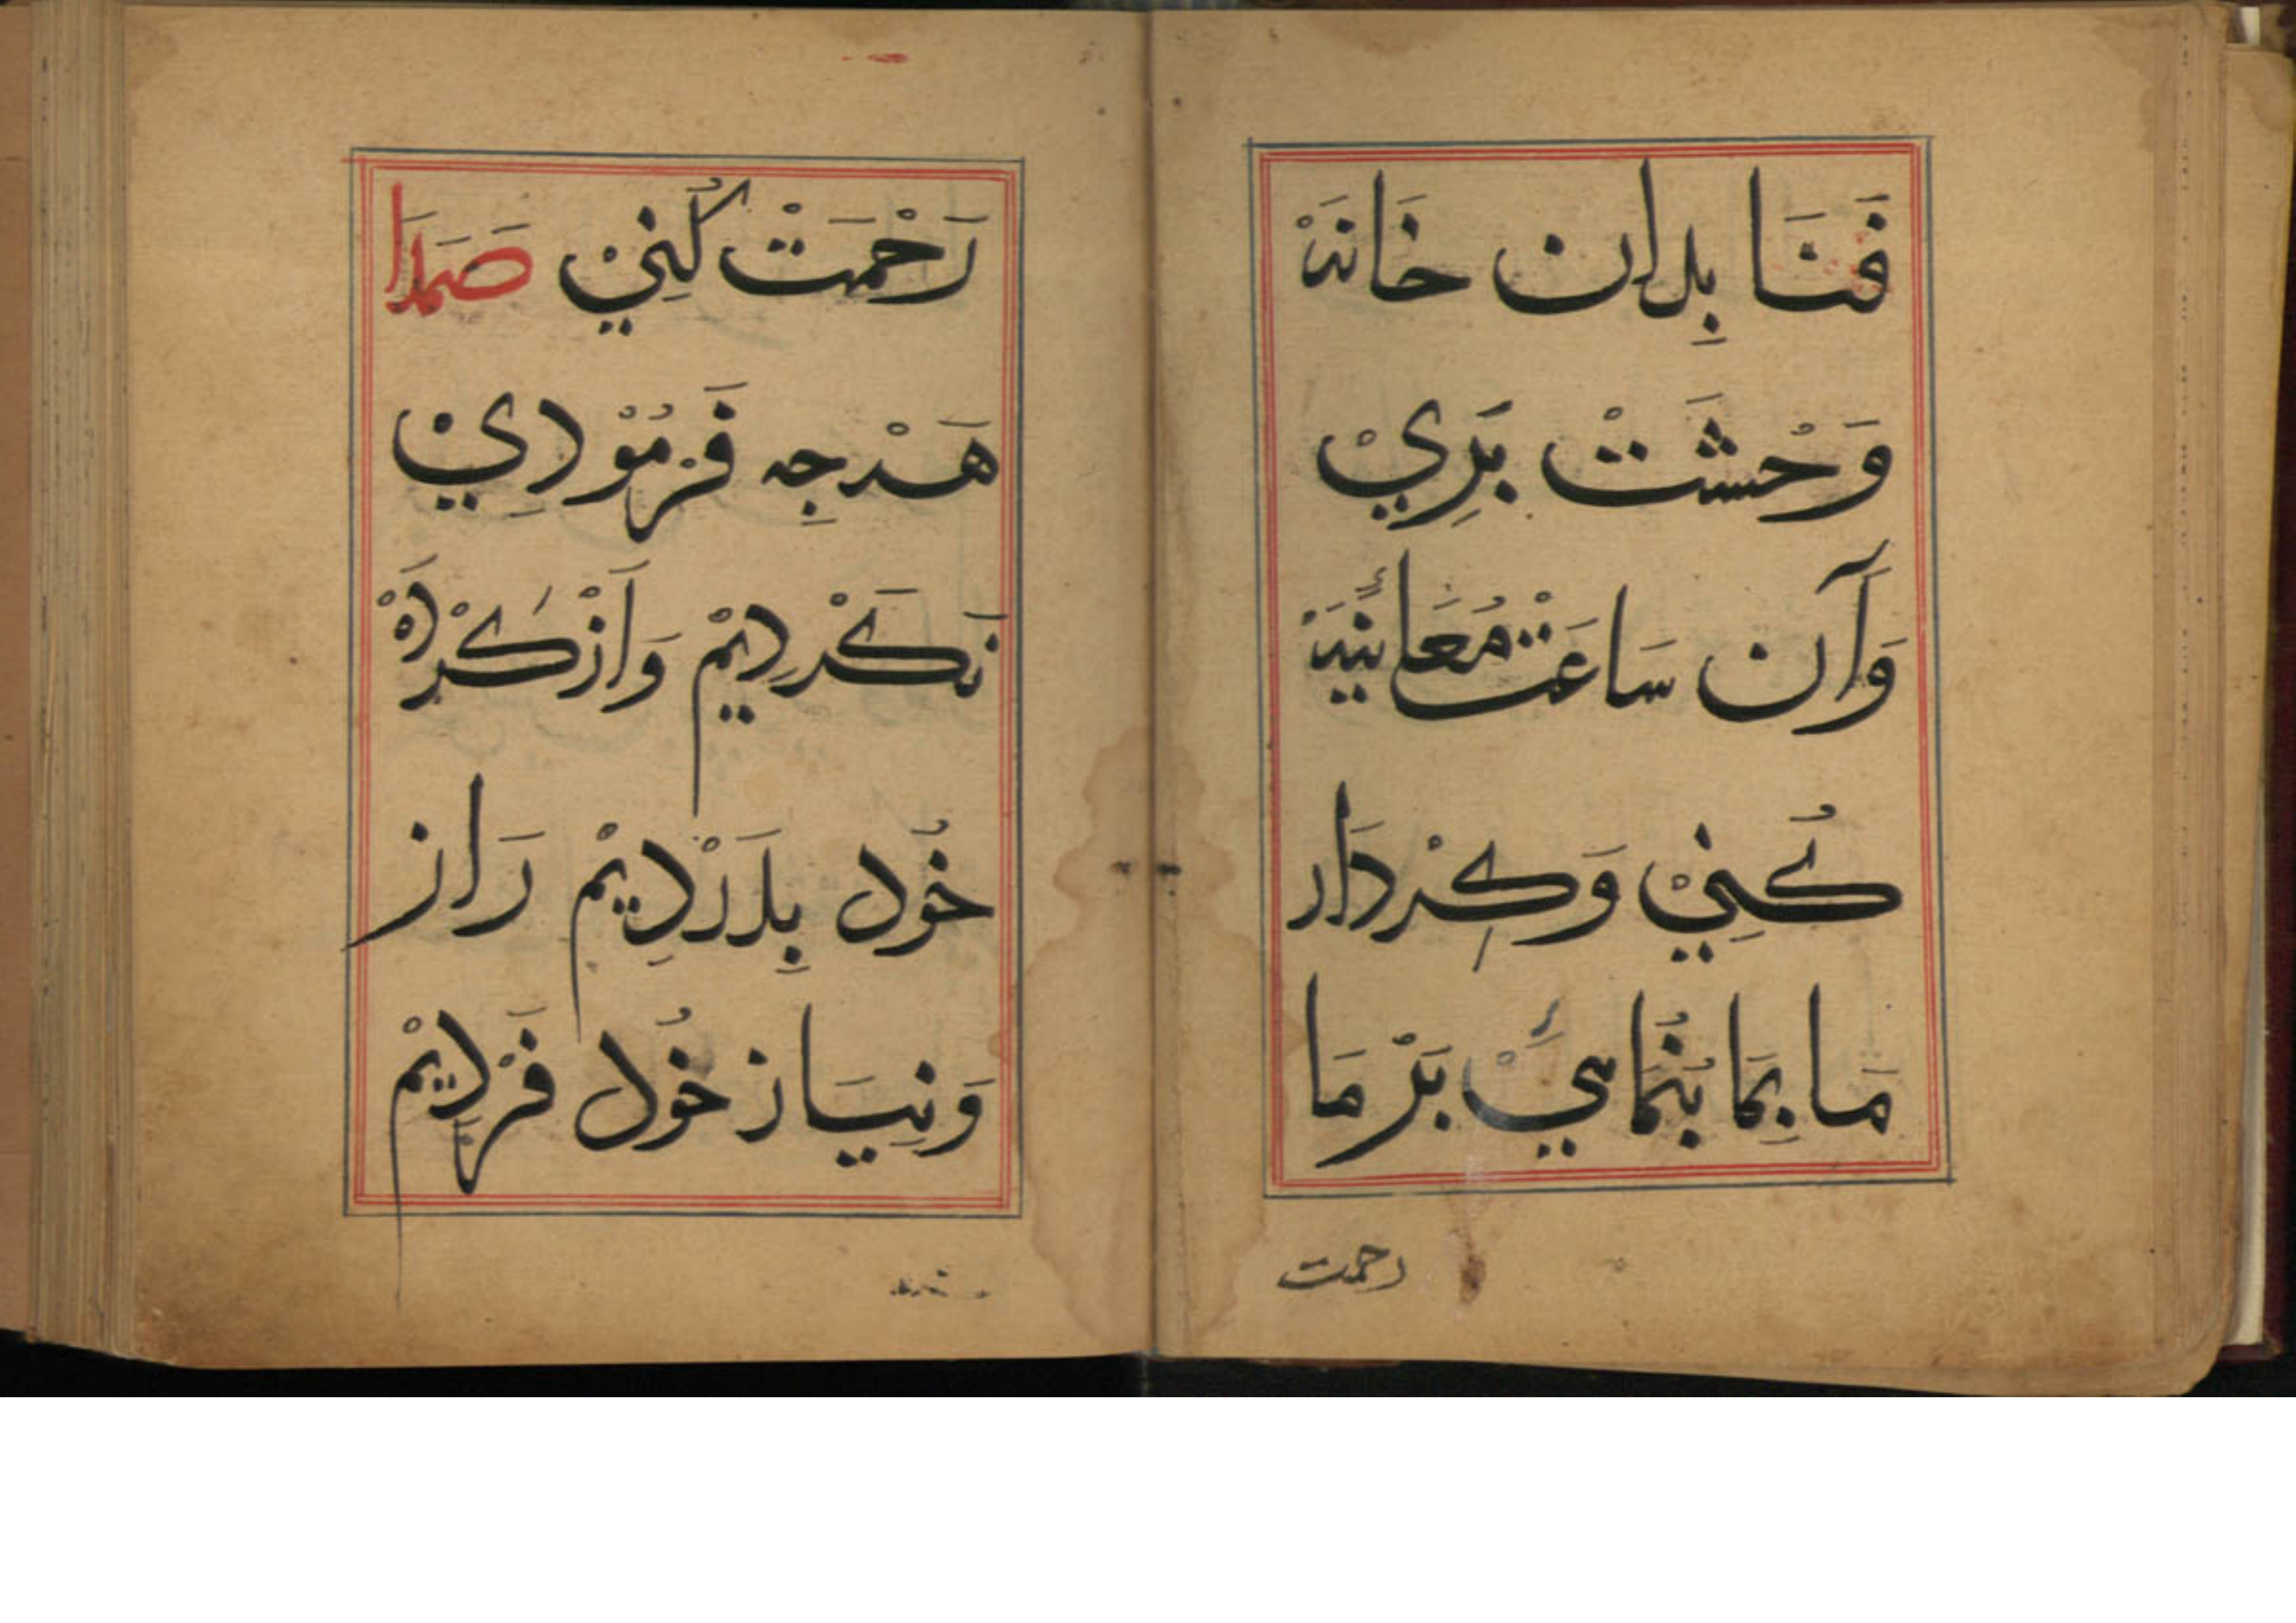 فَنَا بِدان خَانَهْ
وَحْشَتْ بَرِيْ
وَآن سَاعَتْ مُعَايَنَهْ
كُنِيْ وَكِرْدَار
مَا بِمَا بُنْمَائِيْ بَرْ مَا
رحمت
رَحْمَتْ كُنِيْ صَمَدَا
هَرْچِه فَرْمُوْدِيْ
نَكَرْدِيْمْ وَازْ كَرْدَهْ
خُود بِدَرْدِيْمْ رَاز
وَنِيَاز خُود فَرْدِيْمْ